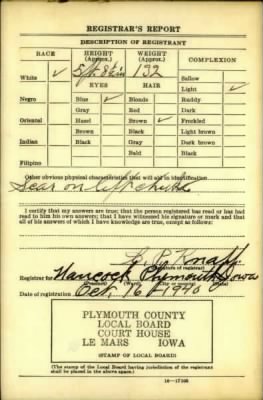 REGISTRAR'S REPORT
DESCRIPTION OF REGISTRANT
RACE HEIGHT (Approx.) WEIGHT (Approx.) COMPLEXION
White ✓ 5 ft. 8 in 132 Sallow
EYES HAIR Light ✓
Negro Blue ✓ Blonde Ruddy
Gray Red Dark
Oriental Hazel Brown ✓ Freckled
Brown Black Light brown
Indian Black Gray Dark brown
Bald Black
Filipino
Other obvious physical characteristics that will aid in identification
Scar on left cheek
I certify that my answers are true; that the person registered has read or has had
read to him his own answers; that I have witnessed his signature or mark and that
all of his answers of which I have knowledge are true, except as follows:
Knapp
(Signature of registrar)
Registrar for Hancock Plymouth Iowa
(Precinct) (Ward) (City or county) (State)
Date of registration Oct. 16 - 1940
PLYMOUTH COUNTY
LOCAL BOARD
COURT HOUSE
LE MARS IOWA
(STAMP OF LOCAL BOARD)
(The stamp of the Local Board having jurisdiction of the registrant
shall be placed in the above space.)